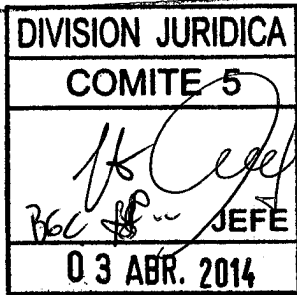 DIVISION JURIDICA
COMITE 5
JEFE
03 ABR. 2014